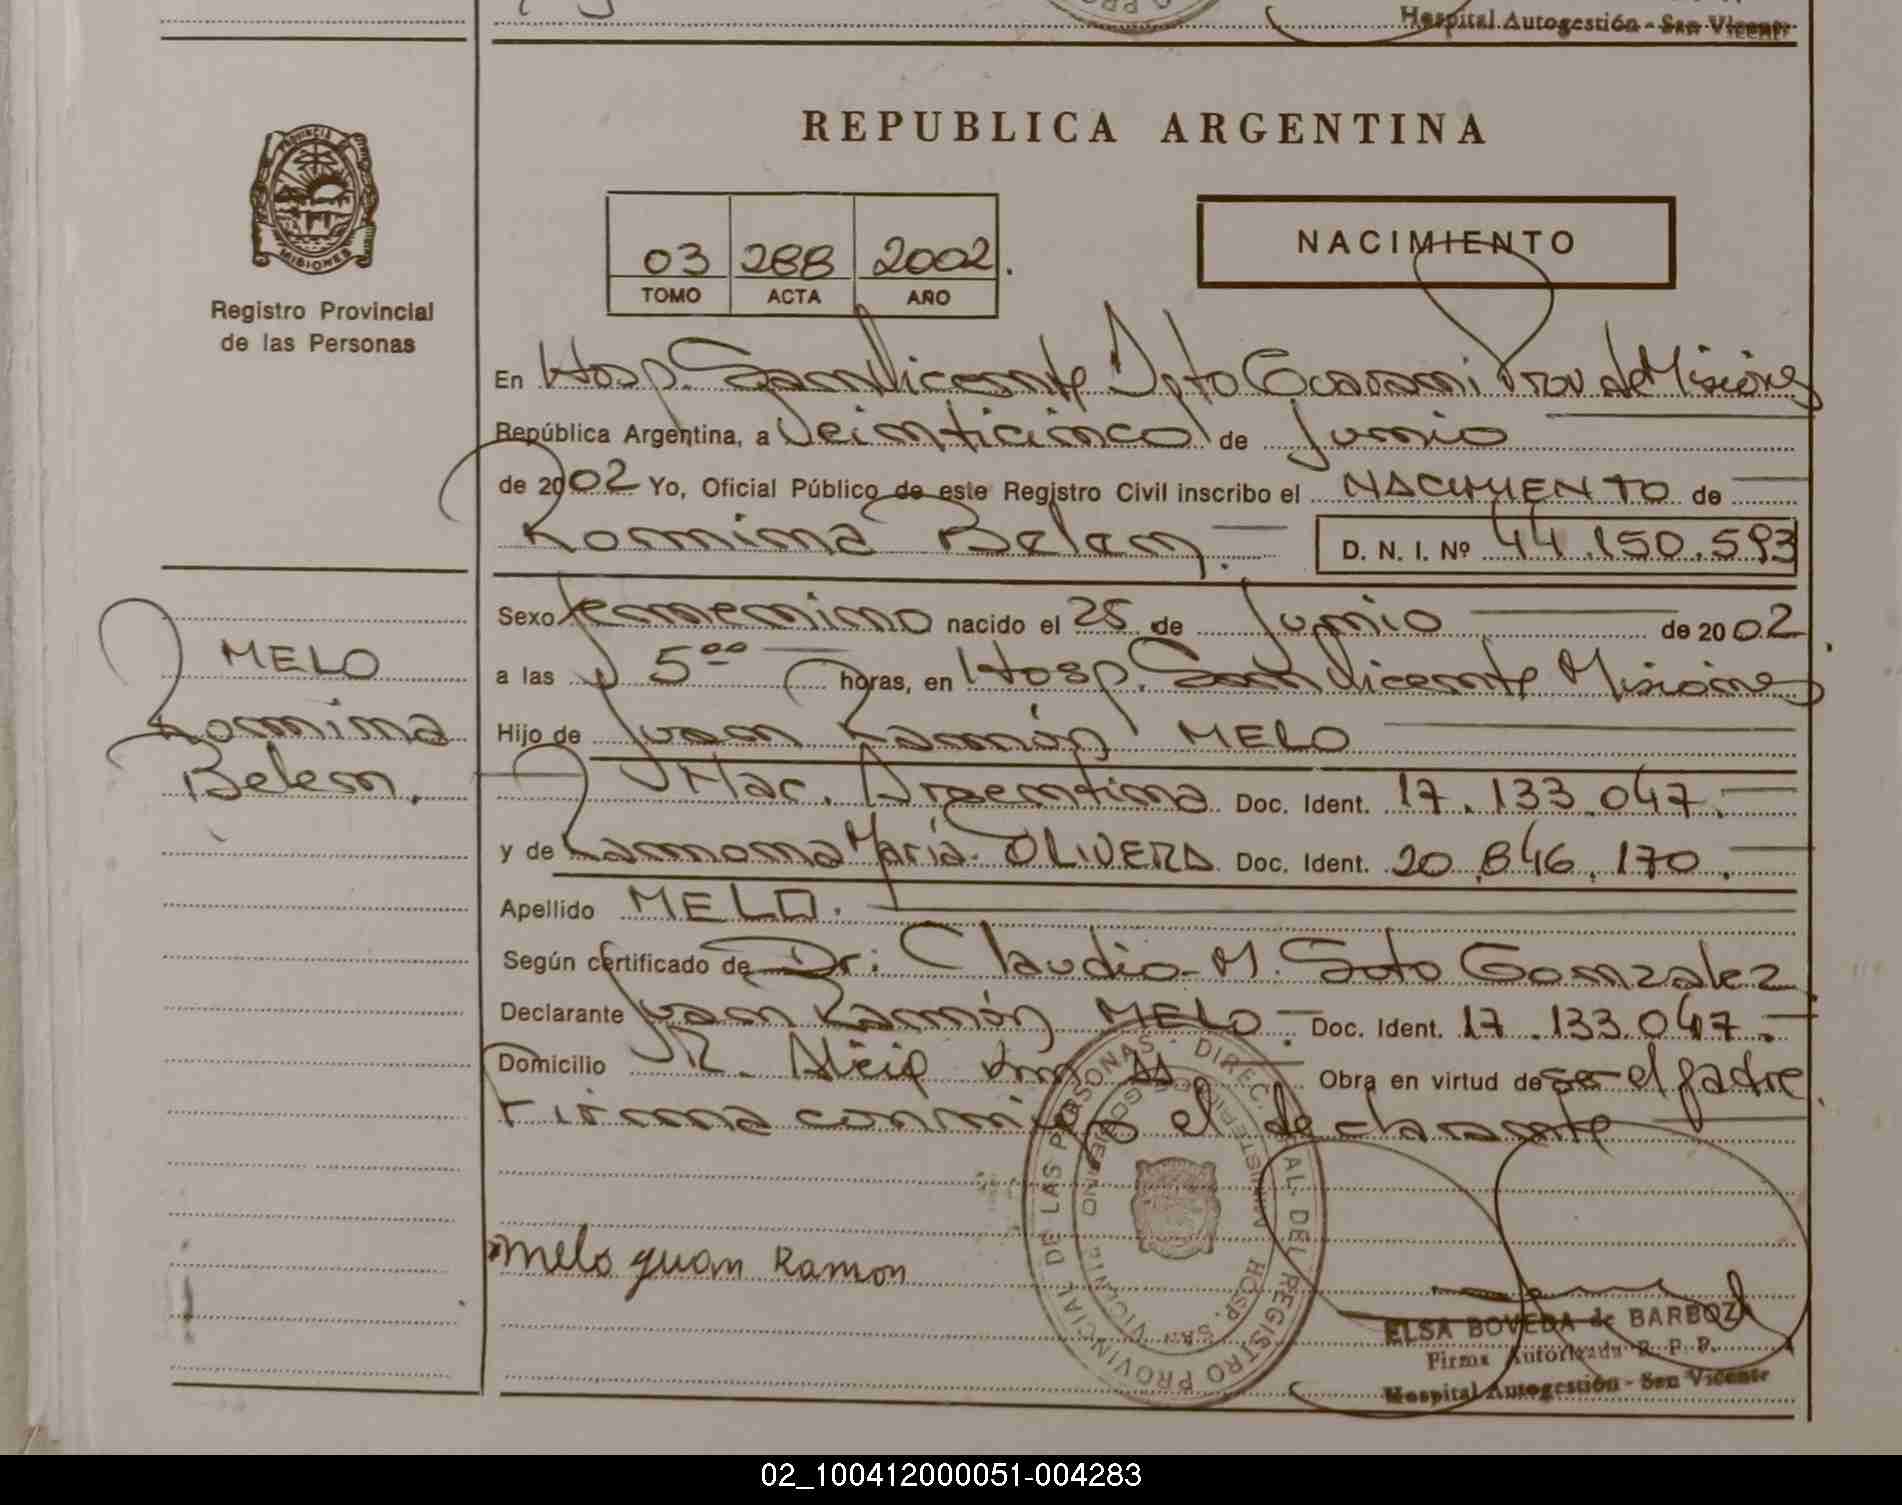 Hospital Autogestión - San Vicente
PROVINCIA
MISIONES
Registro Provincial
de las Personas
REPUBLICA ARGENTINA
03 288 2002.
TOMO ACTA AÑO
NACIMIENTO
En Hosp. San Vicente Dpto Guarani Prov de Misiones
República Argentina, a Veinticinco de Junio
de 2002 Yo, Oficial Público de este Registro Civil inscribo el NACIMIENTO de
Romina Belen. D. N. I. Nº 44.150.593
Sexo femenino nacido el 25 de Junio de 2002.
a las 5⁰⁰ horas, en Hosp. San Vicente Misiones
Hijo de Juan Ramón MELO
Nac. Argentina Doc. Ident. 17.133.047.
y de Ramona María OLIVERA Doc. Ident. 20.846.170.
Apellido MELO.
Según certificado de Dr: Claudio M. Soto Gonzalez
Declarante Juan Ramón MELO. Doc. Ident. 17.133.047.
Domicilio Alicia Obra en virtud de ser el padre
Firma conmigo el declarante
MELO
Romina
Belen.
Melo Juan Ramon
DIREC. GRAL. DEL REGISTRO PROVINCIAL DE LAS PERSONAS
MINISTERIO GOBIERNO
HOSP. SAN VICENTE
ELSA BOVEDA de BARBOZA
Firma Autorizada R. P. P.
Hospital Autogestión - San Vicente
02_100412000051-004283